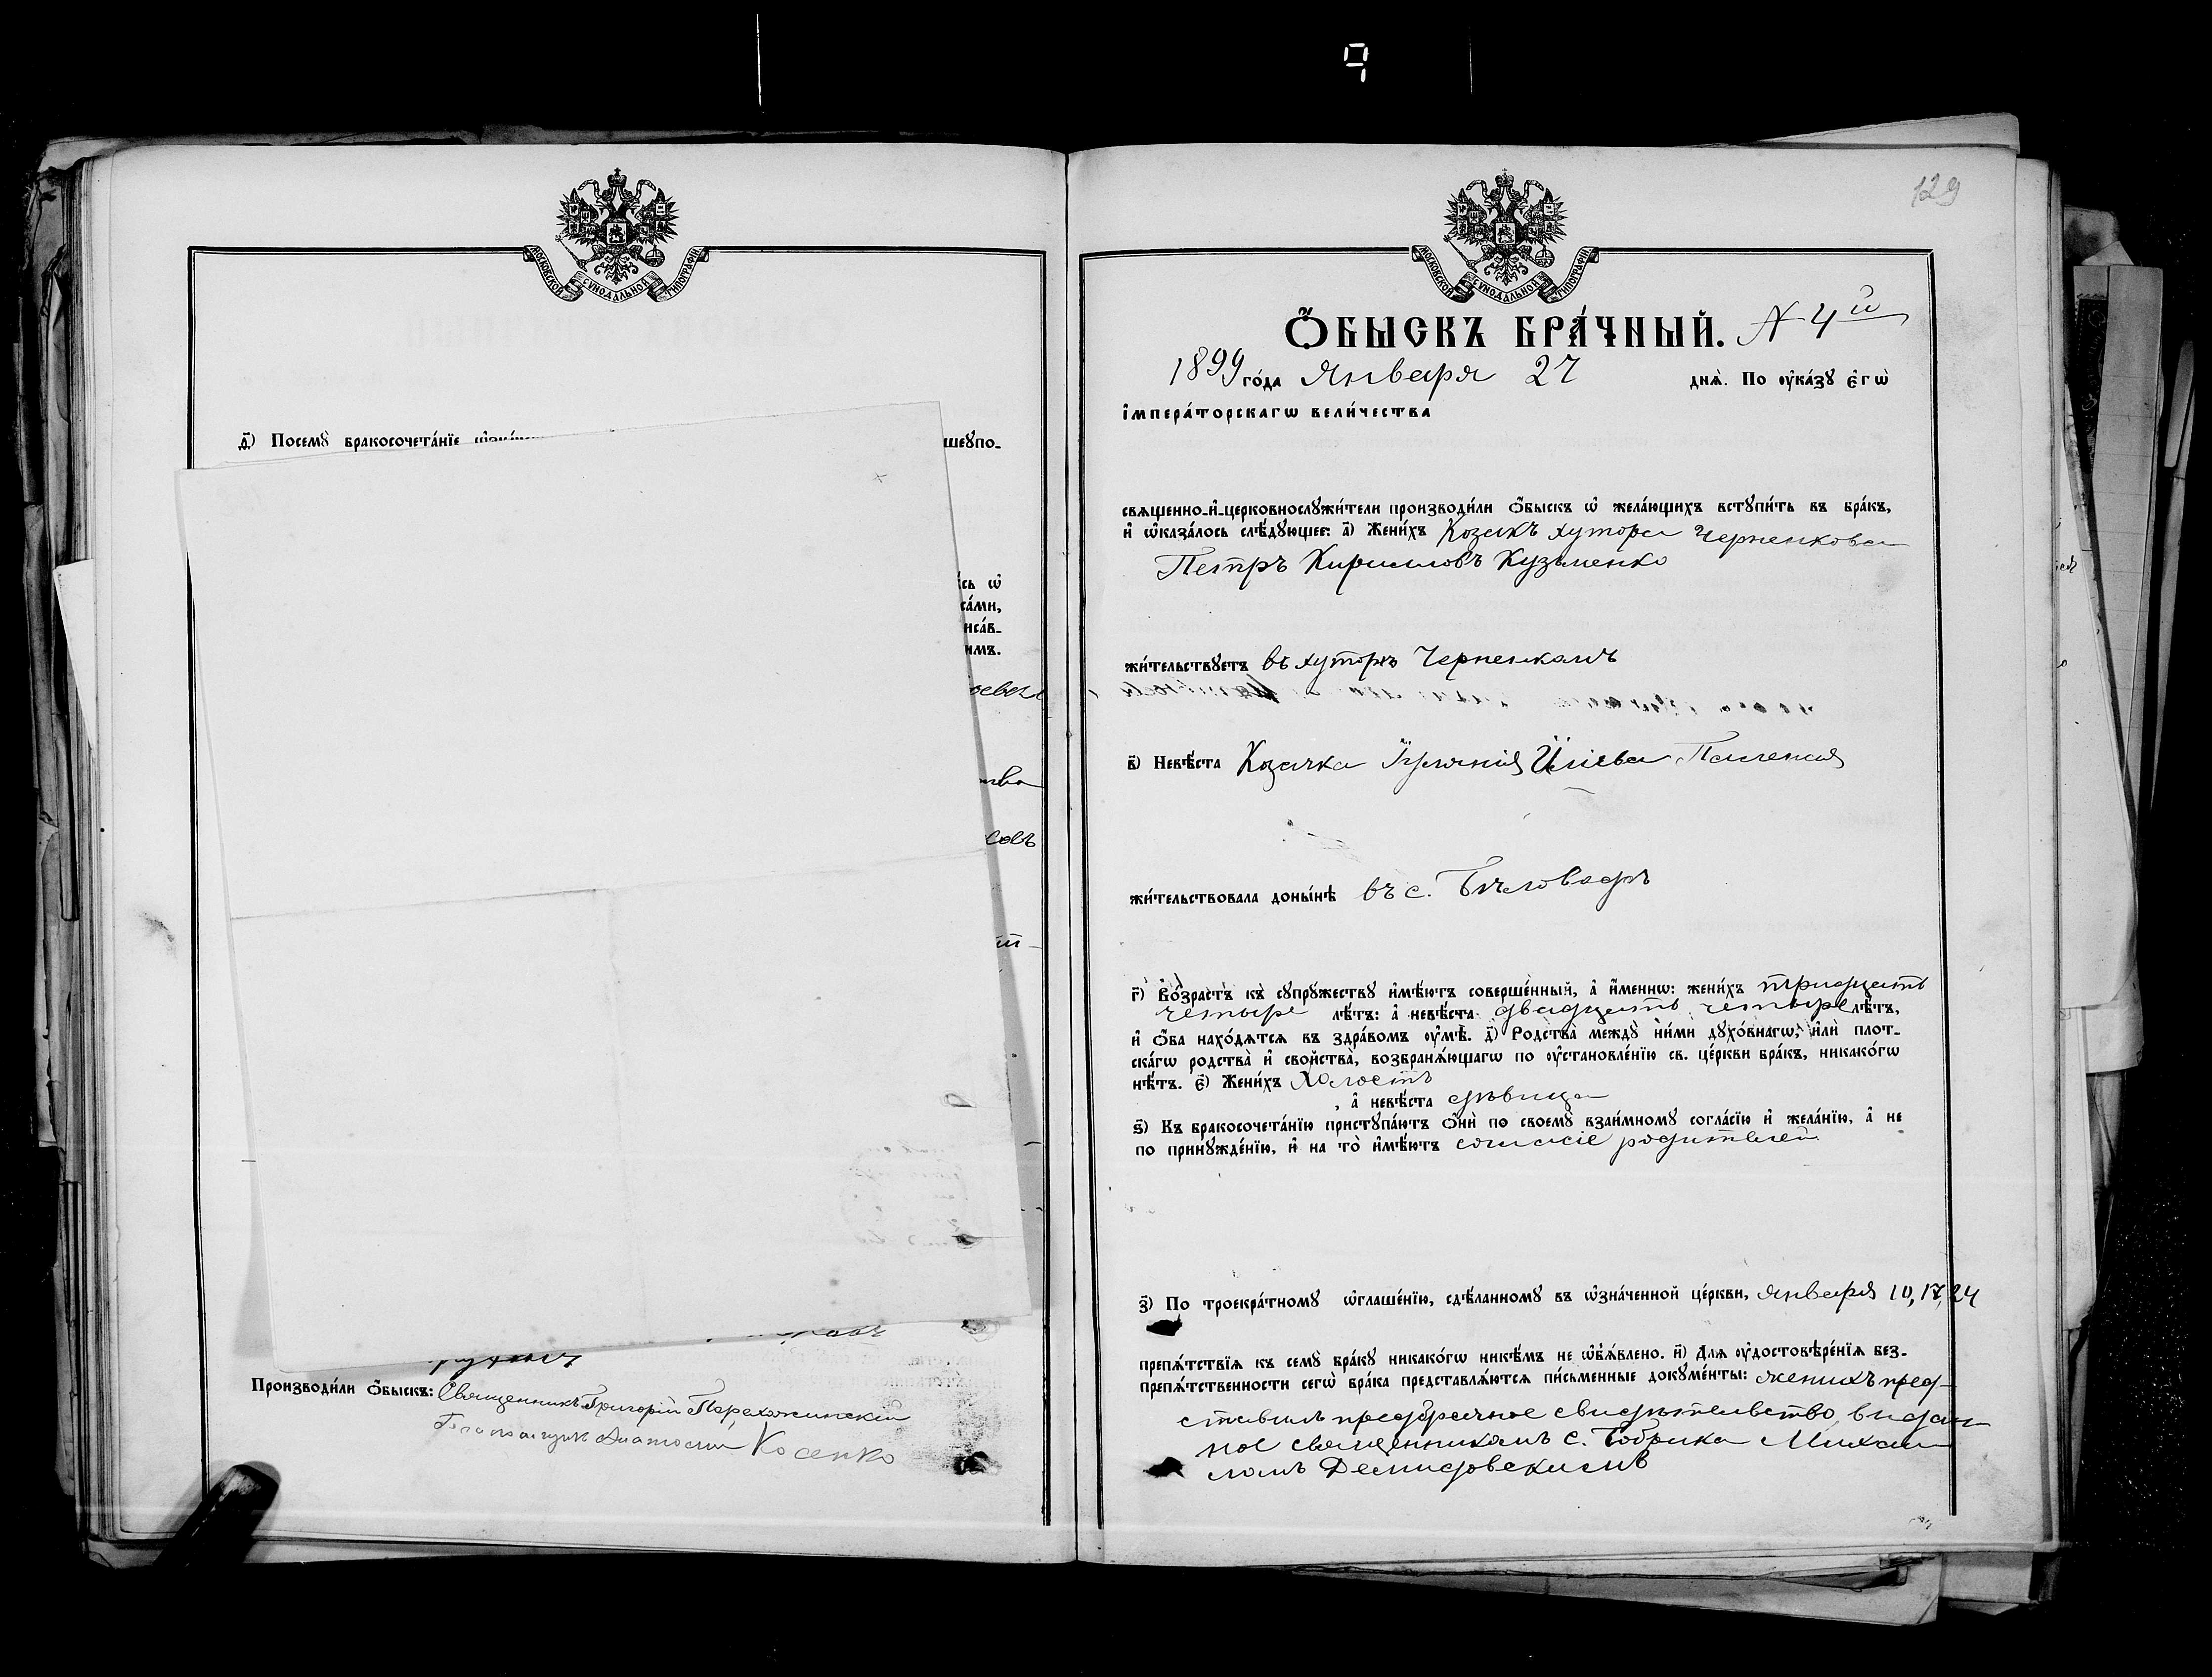 МОСКОВСКОЙ СѴНОДАЛЬНОЙ ТИПОГРАФІИ.
д҃) Посемꙋ̀ бракосочета́нїе
шеꙋпо-
сь ѡ҆
са́ми,
иса́в-
имъ.
совъ
Производи́ли Ѻ҆́быскъ: Священникъ Григорій
Косенко
129
МОСКОВСКОЙ СѴНОДАЛЬНОЙ ТИПОГРАФІИ.
Ѻ҆́БЫСКЪ БРА́ЧНЫЙ. № 4й
1899 го́да Января 27 днѧ̀. По ᲂу҆ка́зꙋ є҆гѡ̀
і҆мпера́торскагѡ вели́чества
свѧщенно-и҆-церковнослꙋжи́тели производи́ли ѻ҆́быскъ ѡ҆ жела́ющихъ встꙋпи́ть въ бра́къ,
и҆ ѡ҆каза́лось слѣ́дꙋющее: а҃) Жени́хъ Козакъ хутора Черненкова
Петръ Кирилловъ Кузьменко
жи́тельствꙋетъ въ хуторѣ Черненкомъ
в҃) Невѣ́ста Козачка Іуліанія Иліева
жи́тельствовала доны́нѣ въ с. Бѣловодѣ
г҃) Во́зрастъ къ сꙋпрꙋжествꙋ и҆мѣ́ютъ соверше́нный, а҆ и҆́меннѡ: жени́хъ тридцать
четыре лѣ́тъ: а҆ невѣ́ста двадцать четыре лѣ́тъ,
и҆ ѻ҆́ба нахо́дѧтсѧ въ здра́вомъ ᲂу҆мѣ̀. д҃) Родства̀ междꙋ̀ ни́ми дꙋхо́внагѡ, и҆лѝ плот-
ска́гѡ родства̀ и҆ свойства̀, возбранѧ́ющагѡ по ᲂу҆становле́нїю св. це́ркви бра́къ, никако́гѡ
нѣ́тъ. є҃) Жени́хъ холостъ
, а҆ невѣ́ста дѣвица
ѕ҃) Къ бракосочета́нїю пристꙋпа́ютъ Ѻ҆нѝ по своемꙋ̀ взаи́мномꙋ согла́сїю и҆ жела́нїю, а҆ не
по принꙋжде́нїю, и҆ на то̀ и҆мѣ́ютъ согласіе родителей
з҃) По троекра́тномꙋ ѡ҆глаше́нїю, сдѣ́ланномꙋ въ ѡ҆зна́ченной це́ркви, Января 10, 17, 24
препѧ́тствїѧ къ семꙋ̀ бра́кꙋ никако́гѡ никѣ́мъ не ѡ҆б̾ѧ́влено. и҃) Длѧ ᲂу҆достовѣре́нїѧ без-
препѧ́тственности сегѡ̀ бра́ка представлѧ́ютсѧ пи́сьменные докꙋме́нты: женихъ пред-
ставилъ предбрачное свидѣтельство, видан-
ное священникомъ с. Бобрика Михаи-
ломъ Демидовскимъ